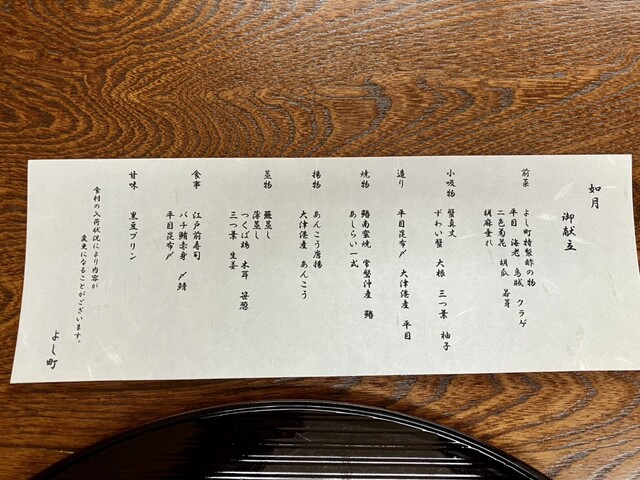 如月
御献立
前菜
よし町特製酢の物
平目 海老 烏賊 クラゲ
二色菊花 胡瓜 若芽
胡麻垂れ
小吸物 蟹真丈
ずわい蟹 大根 三つ葉 柚子
造り 平目昆布〆 大津港産 平目
焼物 鰆南蛮焼 常磐沖産 鰆
あしらい一式
揚物 あんこう唐揚
大津港産 あんこう
蒸物
蕪蒸し
つくば鶏 木耳 笹葱
三つ葉 生姜
食事 江戸前寿司
バチ鮪赤身 〆鯖
平目昆布〆
甘味 黒豆プリン
食材の入荷状況により内容が
変更になることがございます。
よし町